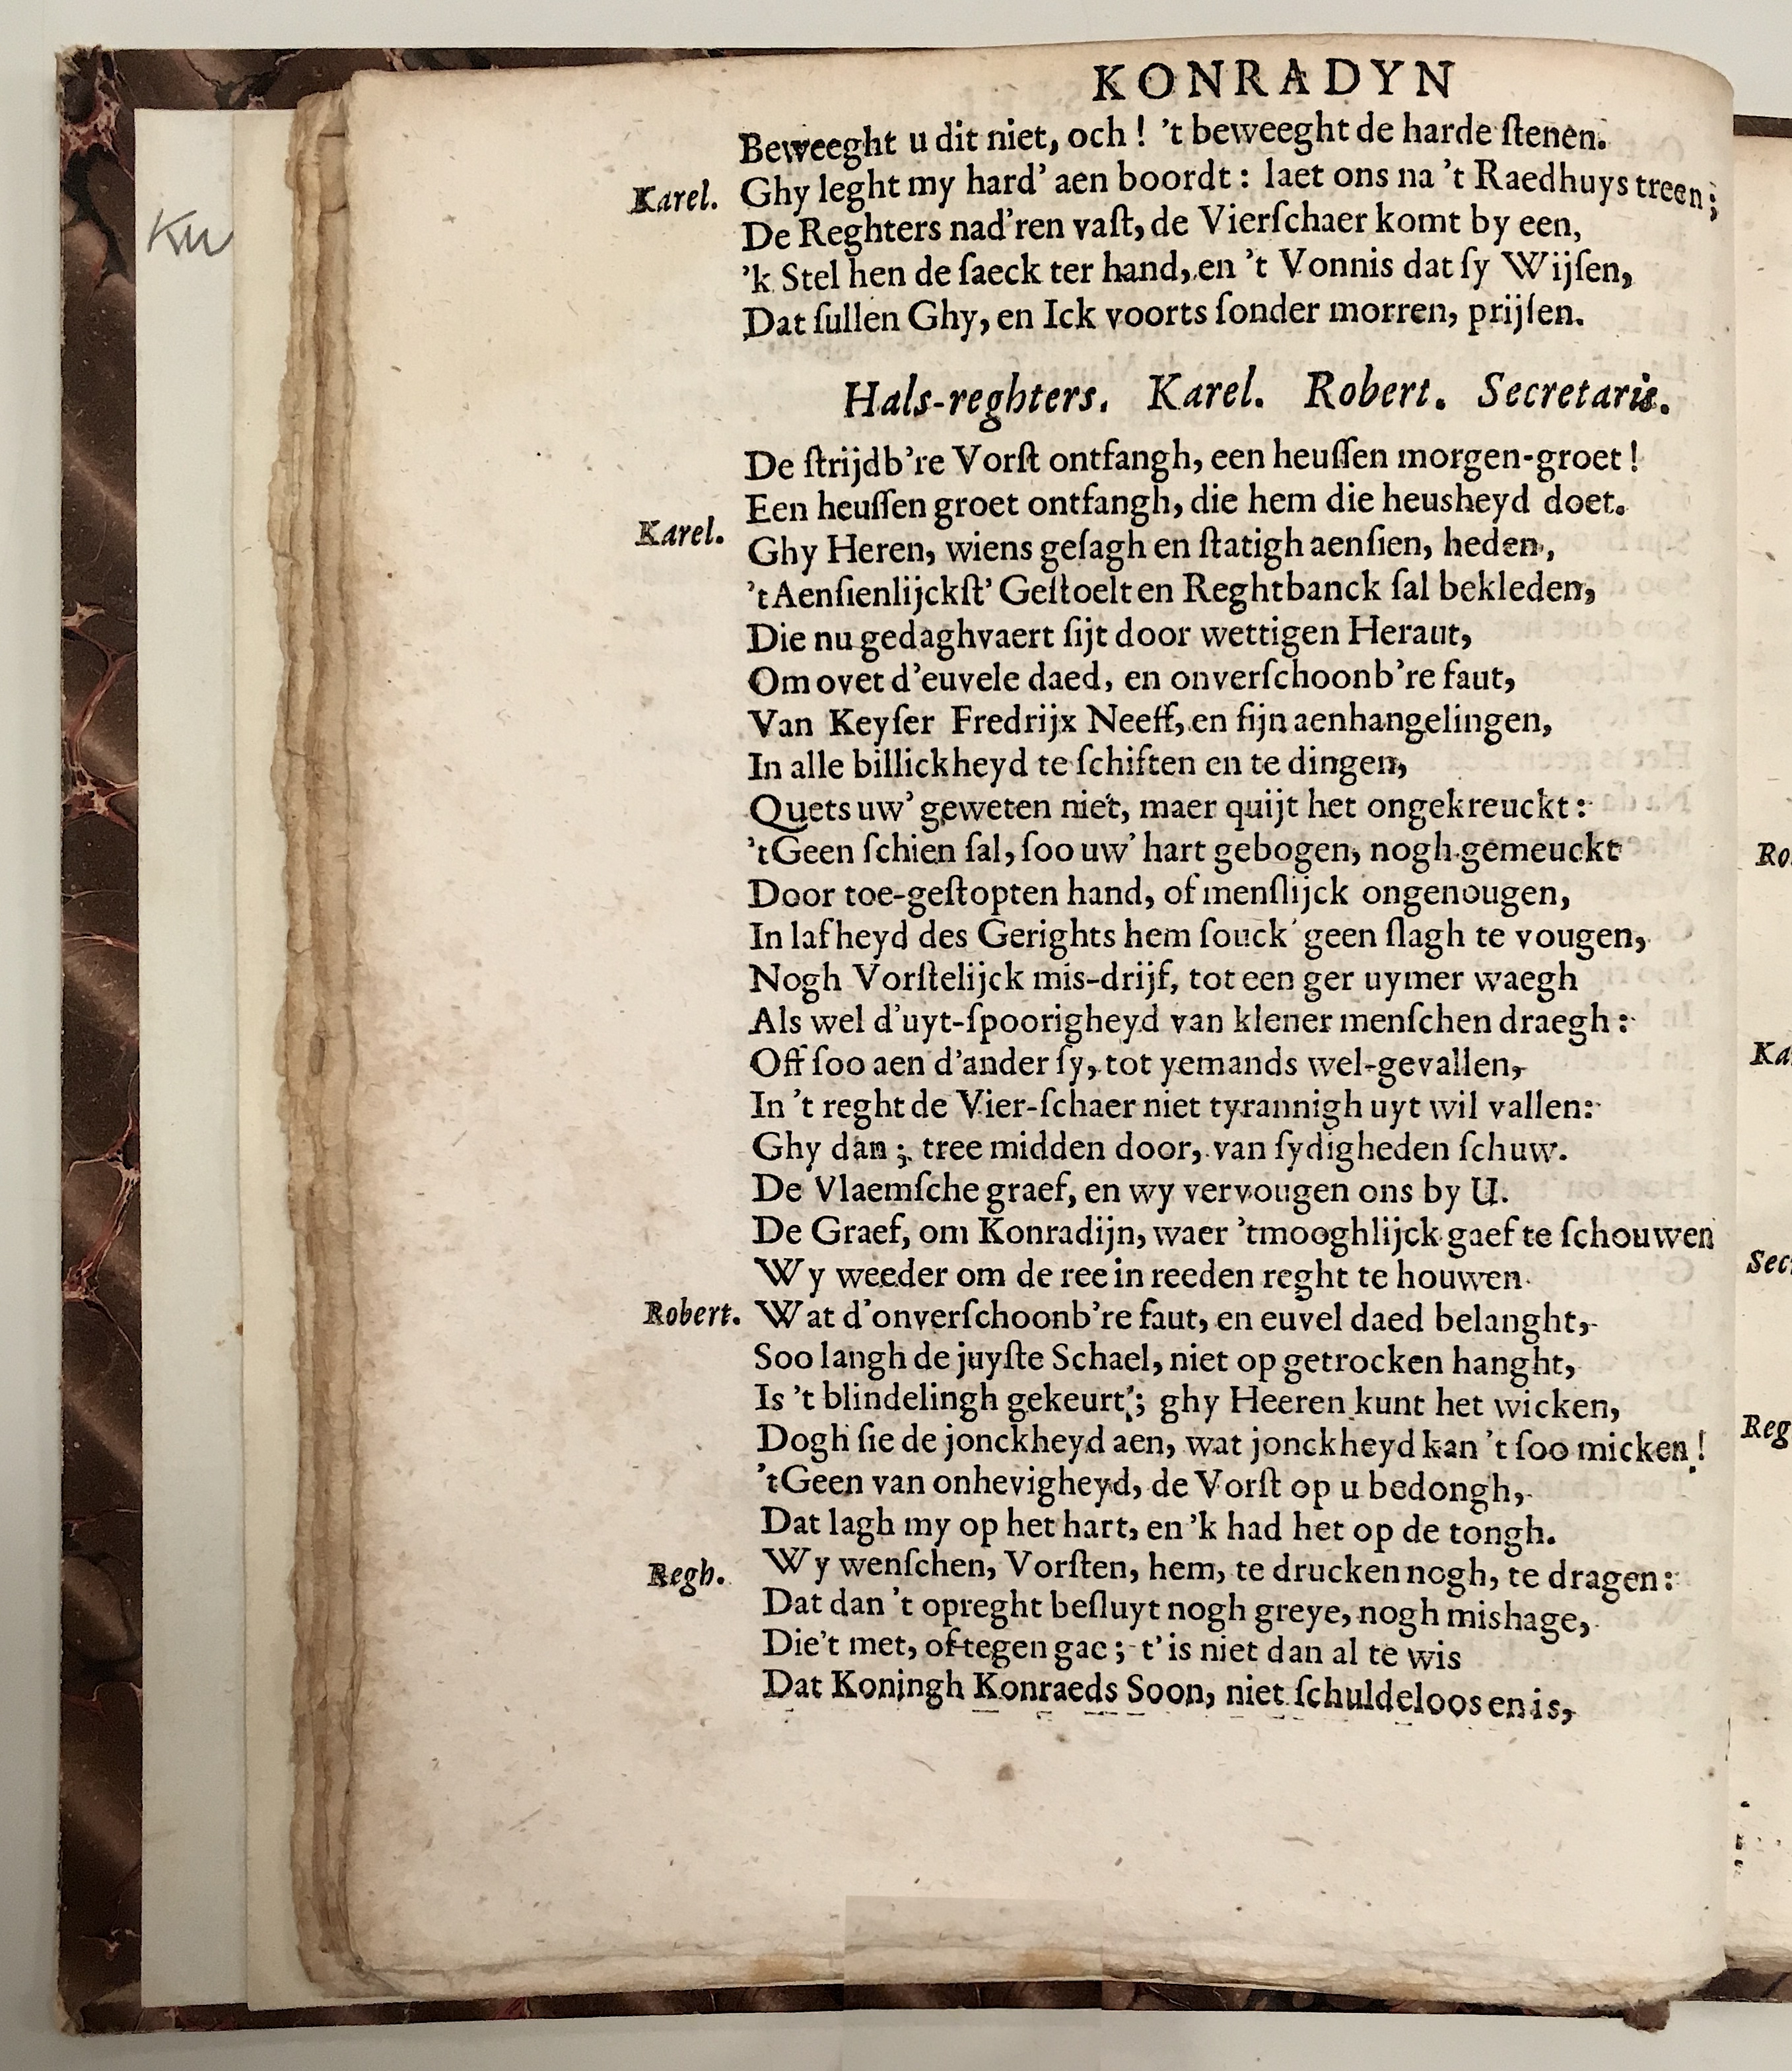 KONRADYN
Beweeght u dit niet, och! 't beweeght de harde ſtenen.
Karel. Ghy leght my hard' aen boordt: laet ons na 't Raedhuys treen;
De Reghters nad'ren vaſt, de Vierſchaer komt by een,
'k Stel hen de ſaeck ter hand, en 't Vonnis dat ſy Wijſen,
Dat ſullen Ghy, en Ick voorts ſonder morren, prijſen.
Hals-reghters. Karel. Robert. Secretaris.
De ſtrijdb're Vorſt ontfangh, een heuſſen morgen-groet!
Karel. Een heuſſen groet ontfangh, die hem die heusheyd doet.
Ghy Heren, wiens geſagh en ſtatigh aenſien, heden,
't Aenſienlijckſt' Geſtoelt en Reghtbanck ſal bekleden,
Die nu gedaghvaert ſijt door wettigen Heraut,
Om ovet d'euvele daed, en onverſchoonb're faut,
Van Keyſer Fredrijx Neeff, en ſijn aenhangelingen,
In alle billickheyd te ſchiften en te dingen,
Quets uw' geweten niet, maer quijt het ongekreuckt:
't Geen ſchien ſal, ſoo uw' hart gebogen, nogh gemeuckt
Door toe-geſtopten hand, of menſlijck ongenougen,
In lafheyd des Gerights hem ſouck' geen ſlagh te vougen,
Nogh Vorſtelijck mis-drijf, tot een ger uymer waegh
Als wel d'uyt-ſpoorigheyd van klener menſchen draegh:
Off ſoo aen d'ander ſy, tot yemands wel-gevallen,
In 't reght de Vier-ſchaer niet tyrannigh uyt wil vallen:
Ghy dan; tree midden door, van ſydigheden ſchuw.
De Vlaemſche graef, en wy vervougen ons by U.
De Graef, om Konradijn, waer 'tmooghlijck gaef te ſchouwen
Wy weeder om de ree in reeden reght te houwen
Robert. Wat d'onverſchoonb're faut, en euvel daed belanght,
Soo langh de juyſte Schael, niet op getrocken hanght,
Is 't blindelingh gekeurt; ghy Heeren kunt het wicken,
Dogh ſie de jonckheyd aen, wat jonckheyd kan 't ſoo micken!
't Geen van onhevigheyd, de Vorſt op u bedongh,
Dat lagh my op het hart, en 'k had het op de tongh.
Regh. Wy wenſchen, Vorſten, hem, te drucken nogh, te dragen:
Dat dan 't opreght beſluyt nogh greye, nogh mishage,
Die't met, of tegen gae; t' is niet dan al te wis
Dat Koningh Konraeds Soon, niet ſchuldeloos en is,
Ku
Ro
Ka
Sec
Reg